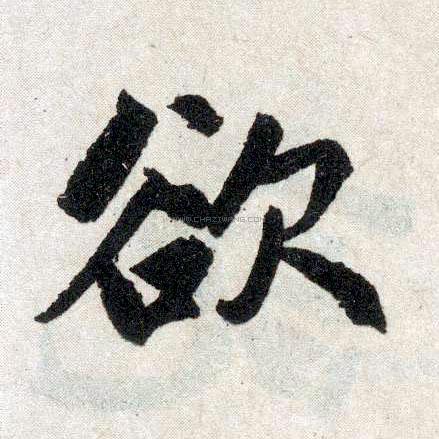 欲
WWW.CHAZIWANG.COM